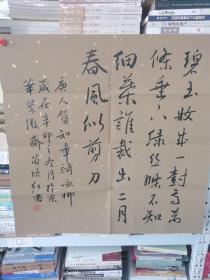 碧玉妝成一樹高萬
條垂下綠絲絛不知
細葉誰裁出二月
春風似剪刀
唐人賀知章詩詠柳
歲在辛卯之冬月於京
華翠微齋苗培紅書